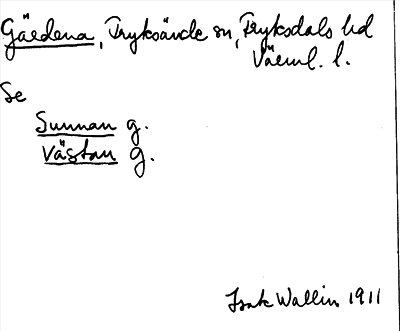 Gärdena, Fryksände sn, Fryksdals hd
Värml. l.
Se
Sunnan g.
Västan g.
Isak Wallin 1911